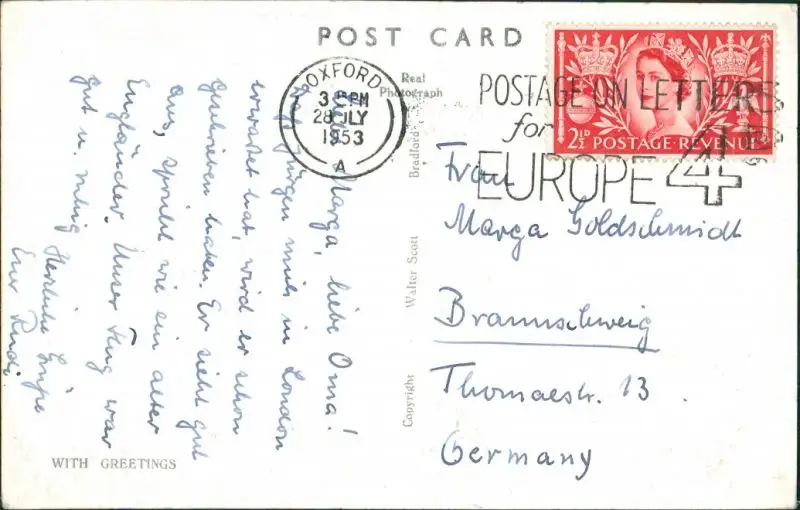 POST CARD
Real
Photograph
OXFORD
3 PM
28 JLY
1953
A
POSTAGE ON LETTERS
for
EUROPE 4
2½D POSTAGE·REVENUE
Marga, liebe Oma!
Jürgen mich in London
erwartet hat, wird er schon
geschrieben haben. Er sieht gut
aus, spricht wie ein alter
Engländer. Unser Flug war
gut u. ruhig
Herzliche Grüße
Euer Rudi
Frau
Marga Goldschmidt
Braunschweig
Thomaestr. 13
Germany
Copyright Walter Scott Bradford
WITH GREETINGS